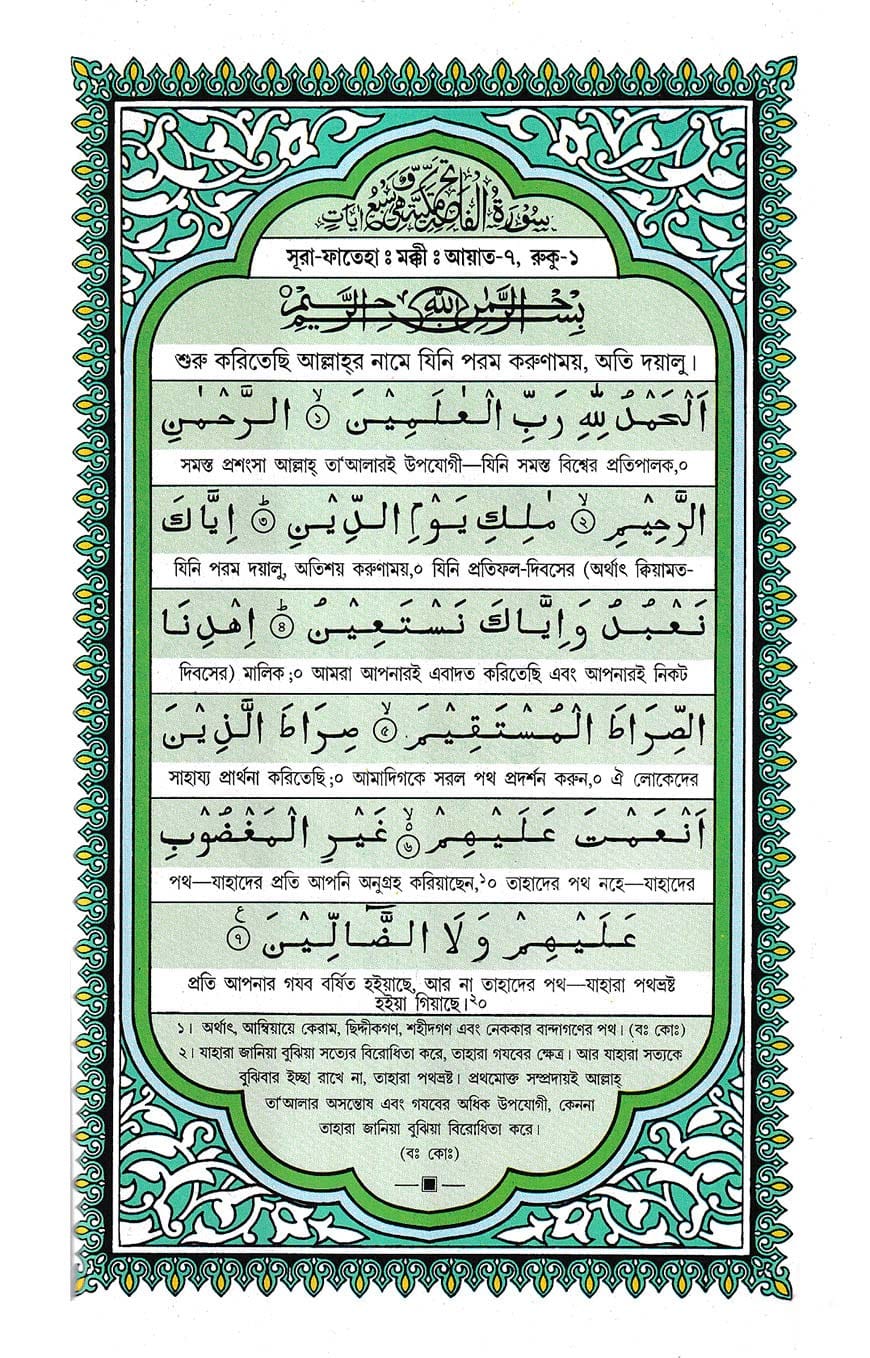 سُوْرَةُ الْفَاتِحَةِ مَكِّيَّةٌ وَّهِيَ سَبْعُ اٰيَاتٍ
সূরা-ফাতেহা ঃ মক্কী ঃ আয়াত-৭, রুকু-১
بِسْمِ اللّٰهِ الرَّحْمٰنِ الرَّحِيْمِ
শুরু করিতেছি আল্লাহ্‌র নামে যিনি পরম করুণাময়, অতি দয়ালু।
اَلْحَمْدُ لِلّٰهِ رَبِّ الْعٰلَمِيْنَ ۙ﴿١﴾ الرَّحْمٰنِ
সমস্ত প্রশংসা আল্লাহ্ তা'আলারই উপযোগী—যিনি সমস্ত বিশ্বের প্রতিপালক,০
الرَّحِيْمِ ۙ﴿٢﴾ مٰلِكِ يَوْمِ الدِّيْنِ ؕ﴿٣﴾ اِيَّاكَ
যিনি পরম দয়ালু, অতিশয় করুণাময়,০ যিনি প্রতিফল-দিবসের (অর্থাৎ ক্বিয়ামত-
نَعْبُدُ وَاِيَّاكَ نَسْتَعِيْنُ ؕ﴿٤﴾ اِهْدِنَا
দিবসের) মালিক ;০ আমরা আপনারই এবাদত করিতেছি এবং আপনারই নিকট
الصِّرَاطَ الْمُسْتَقِيْمَ ۙ﴿٥﴾ صِرَاطَ الَّذِيْنَ
সাহায্য প্রার্থনা করিতেছি ;০ আমাদিগকে সরল পথ প্রদর্শন করুন,০ ঐ লোকেদের
اَنْعَمْتَ عَلَيْهِمْ ۙ۬﴿٦﴾ غَيْرِ الْمَغْضُوْبِ
পথ—যাহাদের প্রতি আপনি অনুগ্রহ করিয়াছেন,১০ তাহাদের পথ নহে—যাহাদের
عَلَيْهِمْ وَلَا الضَّآلِّيْنَ ﴿٧﴾ ع
প্রতি আপনার গযব বর্ষিত হইয়াছে, আর না তাহাদের পথ—যাহারা পথভ্রষ্ট
হইয়া গিয়াছে।২০
১। অর্থাৎ, আম্বিয়ায়ে কেরাম, ছিদ্দীকগণ, শহীদগণ এবং নেককার বান্দাগণের পথ। (বঃ কোঃ)
২। যাহারা জানিয়া বুঝিয়া সত্যের বিরোধিতা করে, তাহারা গযবের ক্ষেত্র। আর যাহারা সত্যকে
বুঝিবার ইচ্ছা রাখে না, তাহারা পথভ্রষ্ট। প্রথমোক্ত সম্প্রদায়ই আল্লাহ্
তা'আলার অসন্তোষ এবং গযবের অধিক উপযোগী, কেননা
তাহারা জানিয়া বুঝিয়া বিরোধিতা করে।
(বঃ কোঃ)